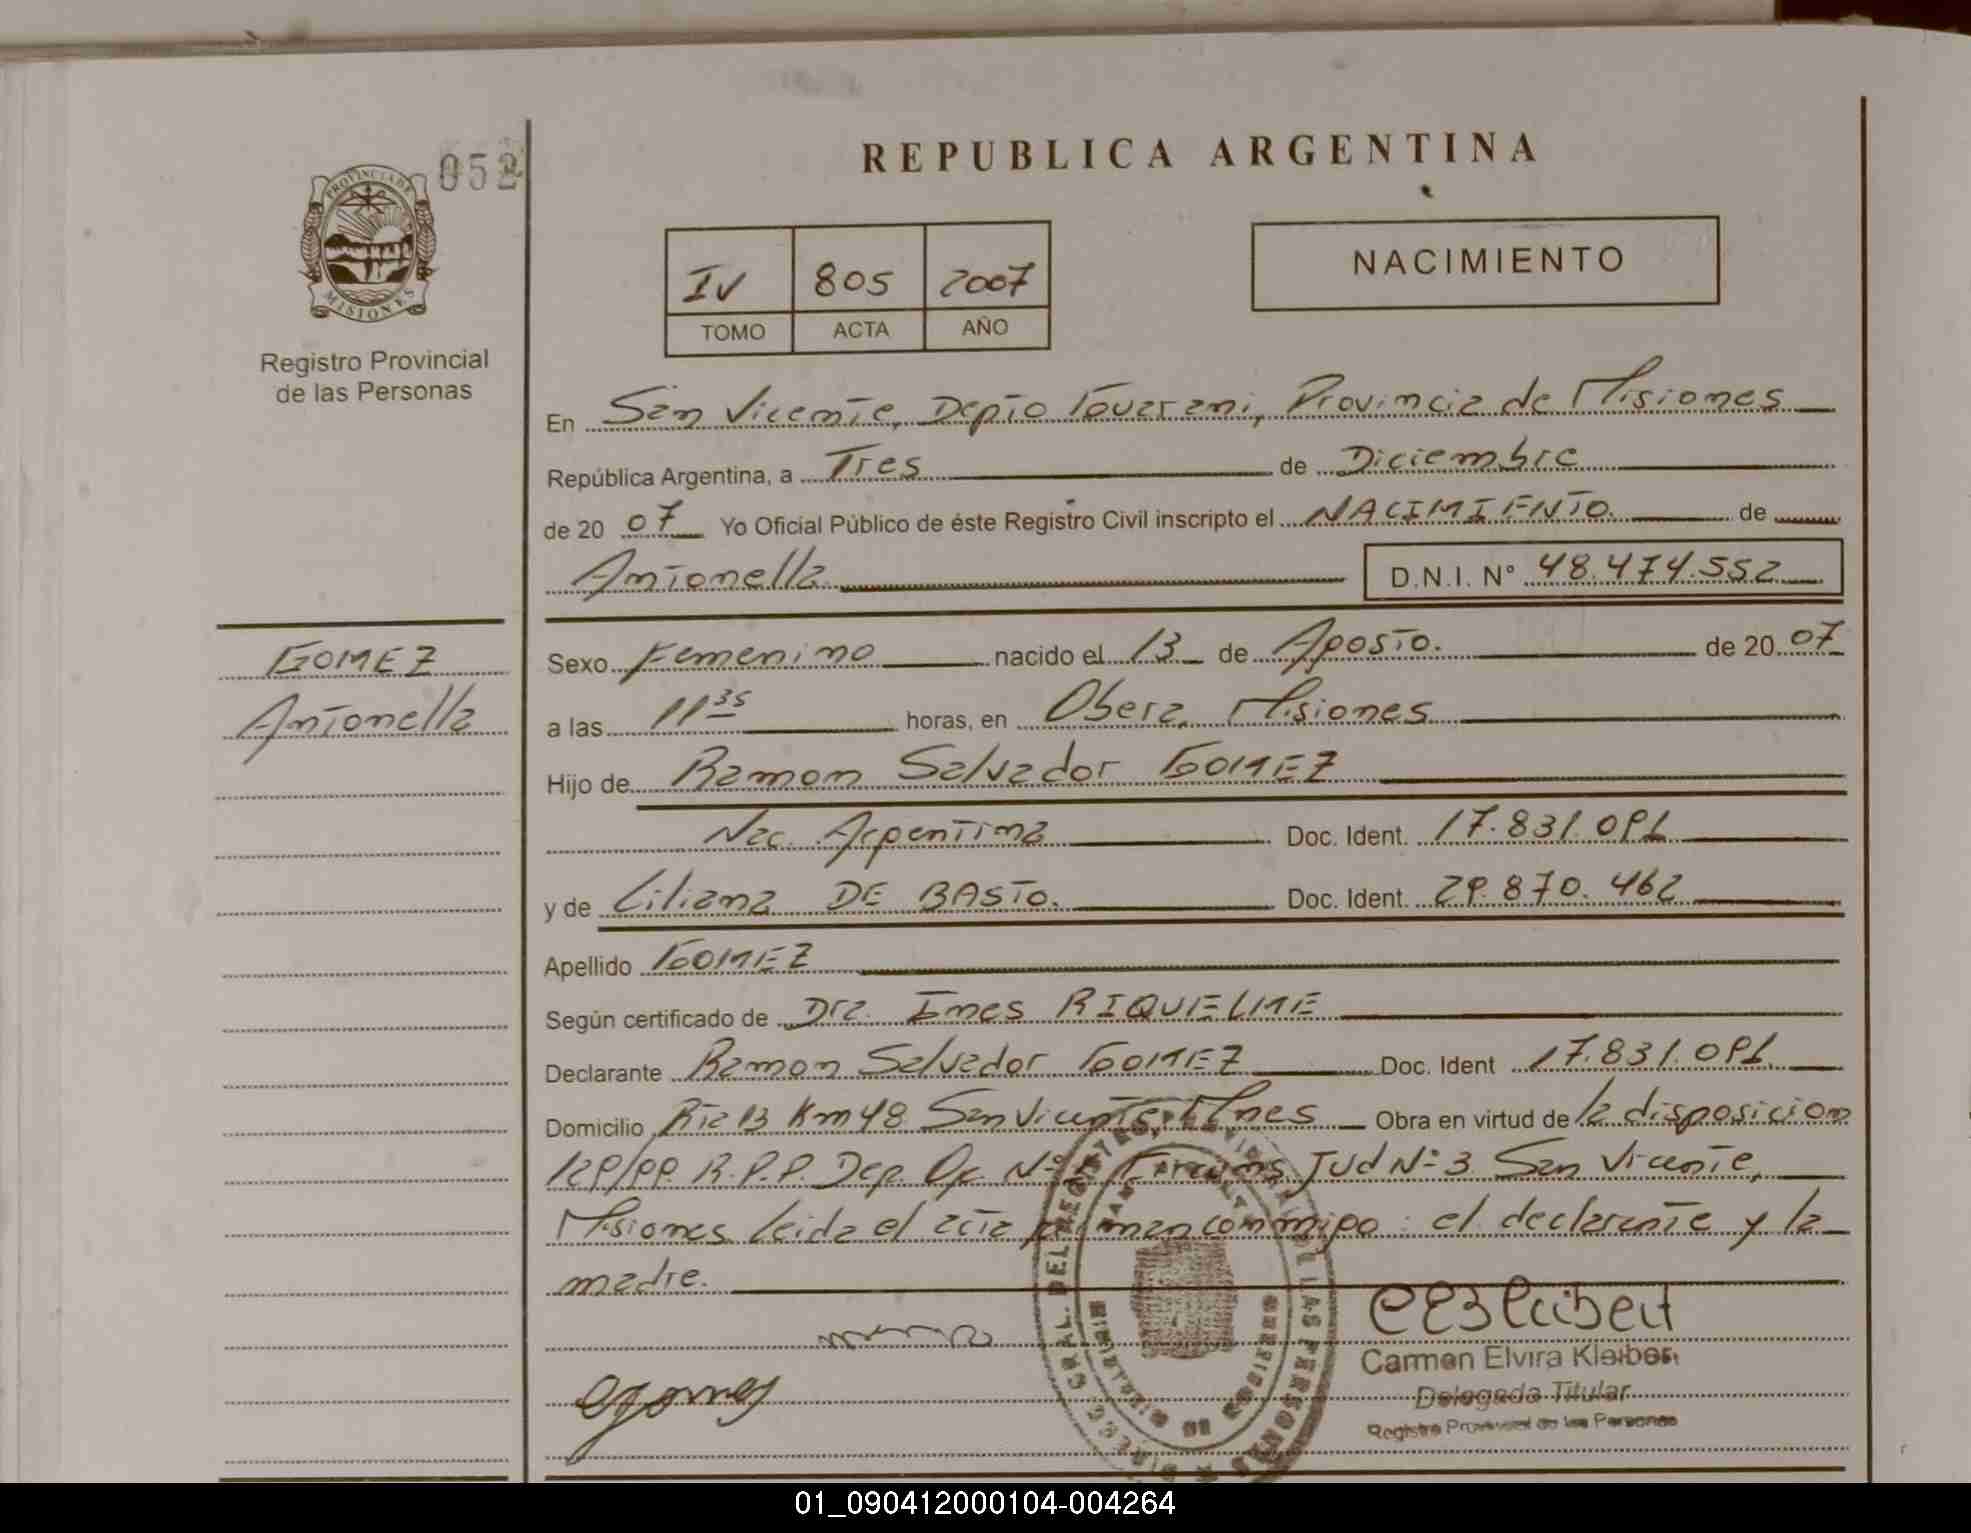 052
PROVINCIA DE
MISIONES
Registro Provincial
de las Personas
GOMEZ
Antonella
REPUBLICA ARGENTINA
IV 805 2007
TOMO ACTA AÑO
NACIMIENTO
En San Vicente, Depto Guarani, Provincia de Misiones
República Argentina, a Tres de Diciembre
de 20 07 Yo Oficial Público de éste Registro Civil inscripto el NACIMIENTO de
Antonella D.N.I. N° 48.474.552
Sexo Femenino nacido el 13 de Agosto. de 20 07
a las 11 35 horas, en Obera, Misiones
Hijo de Ramon Salvador GOMEZ
Nac. Argentina Doc. Ident. 17.831.091
y de Liliana DE BASTO. Doc. Ident. 29.870.462
Apellido GOMEZ
Según certificado de Dra. Ines RIQUELME
Declarante Ramon Salvador GOMEZ Doc. Ident 17.831.091
Domicilio Rta 13 Km 48 San Vicente, Mnes Obra en virtud de la disposicion
129/99. R.P.P. Dep. Jud N° 3 San Vicente,
Misiones leida el acta firman conmigo: el declarante y la
madre.
Carmen Elvira Kleiber
Delegada Titular
Registro Provincial de las Personas
01_090412000104-004264